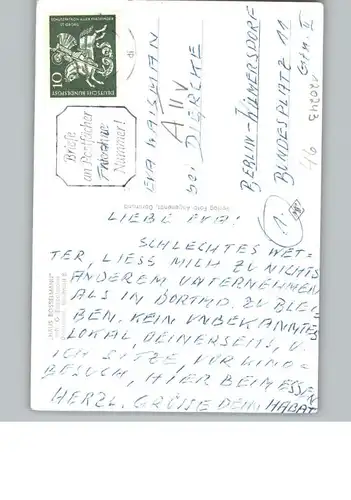 DEUTSCHE BUNDESPOST
10
Briefe
an Postfächer
Nummer!
EVA WAISMAN
A II V
bei DIERCKE
BERLIN-WILMERSDORF
BUNDESPLATZ 11
Gtm. II
LIEBE EVA!
SCHLECHTES WET-
TER, LIESS MICH ZU NICHTS
ANDEREM UNTERNEHMEN
ALS IN DORTMD. ZU BLEI-
BEN. KEIN UNBEKANNTES
LOKAL DEINERSEITS, U.
ICH SITZE, VOR KINO-
BESUCH, HIER BEIM ESSEN
HERZL. GRÜSSE DEIN HABAT